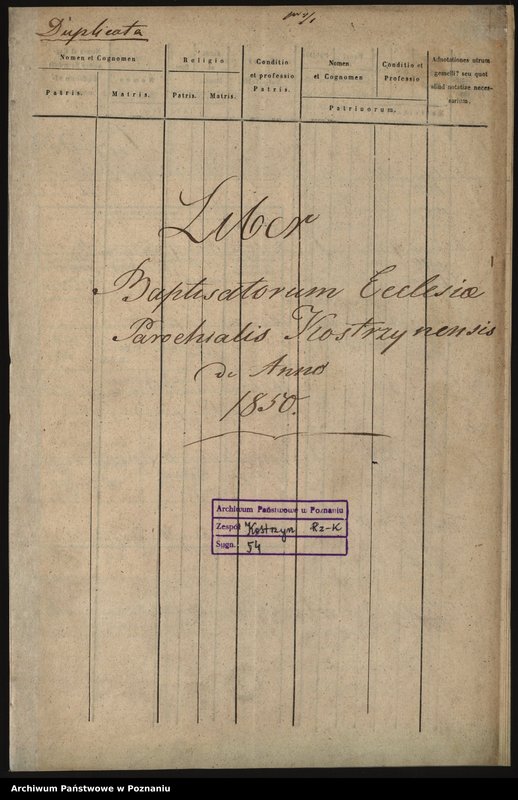 Duplicata
Nomen et Cognomen
Religio
Conditio
et professio
Patris.
Nomen
et Cognomen
Conditio et
Professio
Adnotationes utrum
gemelli? seu quot
aliud notatize neces-
sarium.
Patris.
Matris.
Patris.
Matris.
Patrinorum.
Liber
Baptisatorum Ecclesiæ
Parochialis Kostrzynensis
de Anno
1850.
Archiwum Państwowe w Poznaniu
Zespół Kostrzyn Rz-K
Sygn. 54
Archiwum Państwowe w Poznaniu